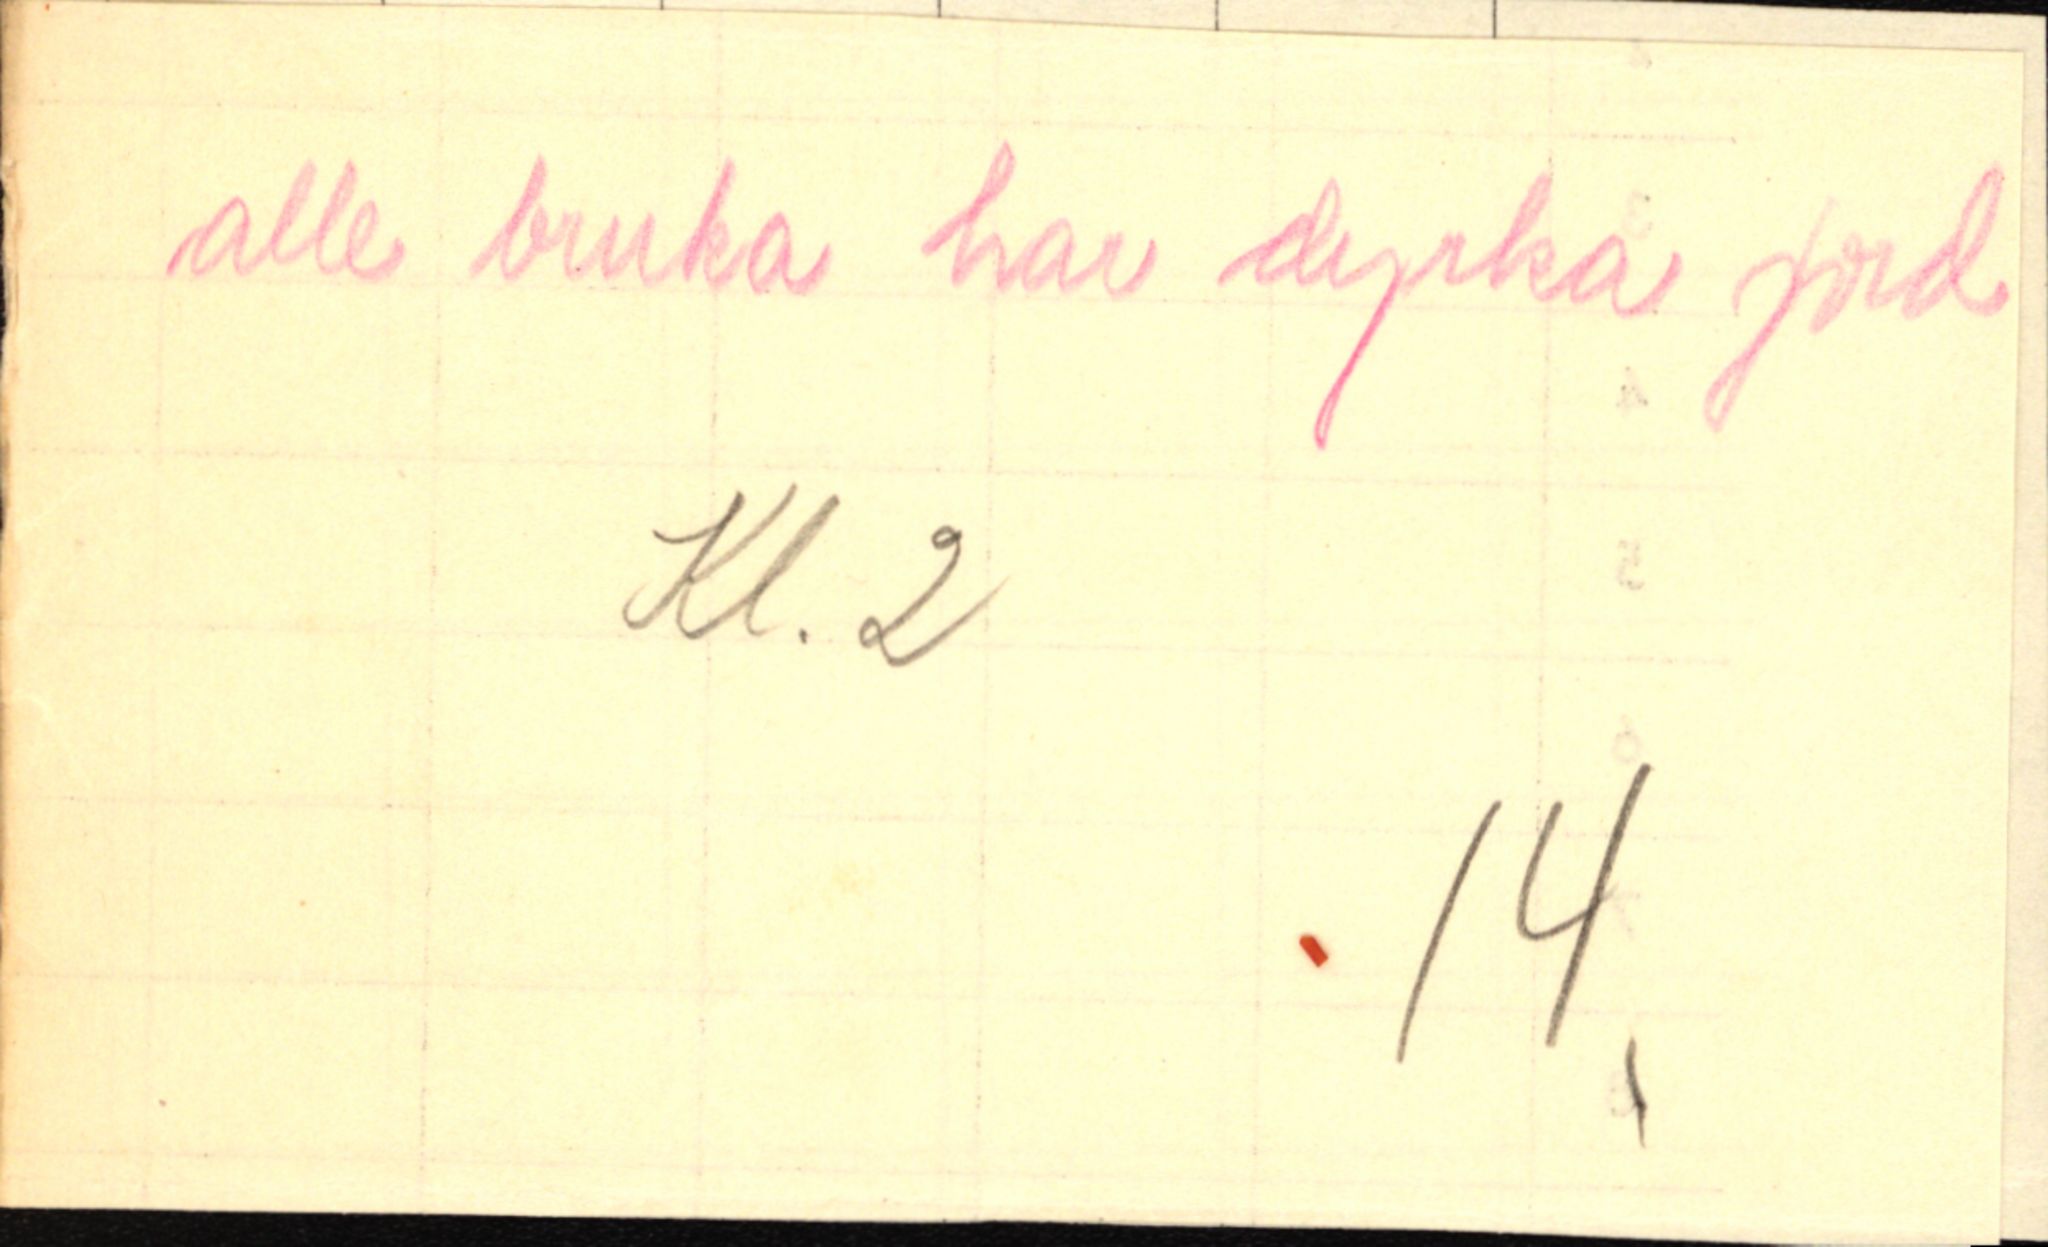 alle bruka har dyrka jord
Kl. 2
14